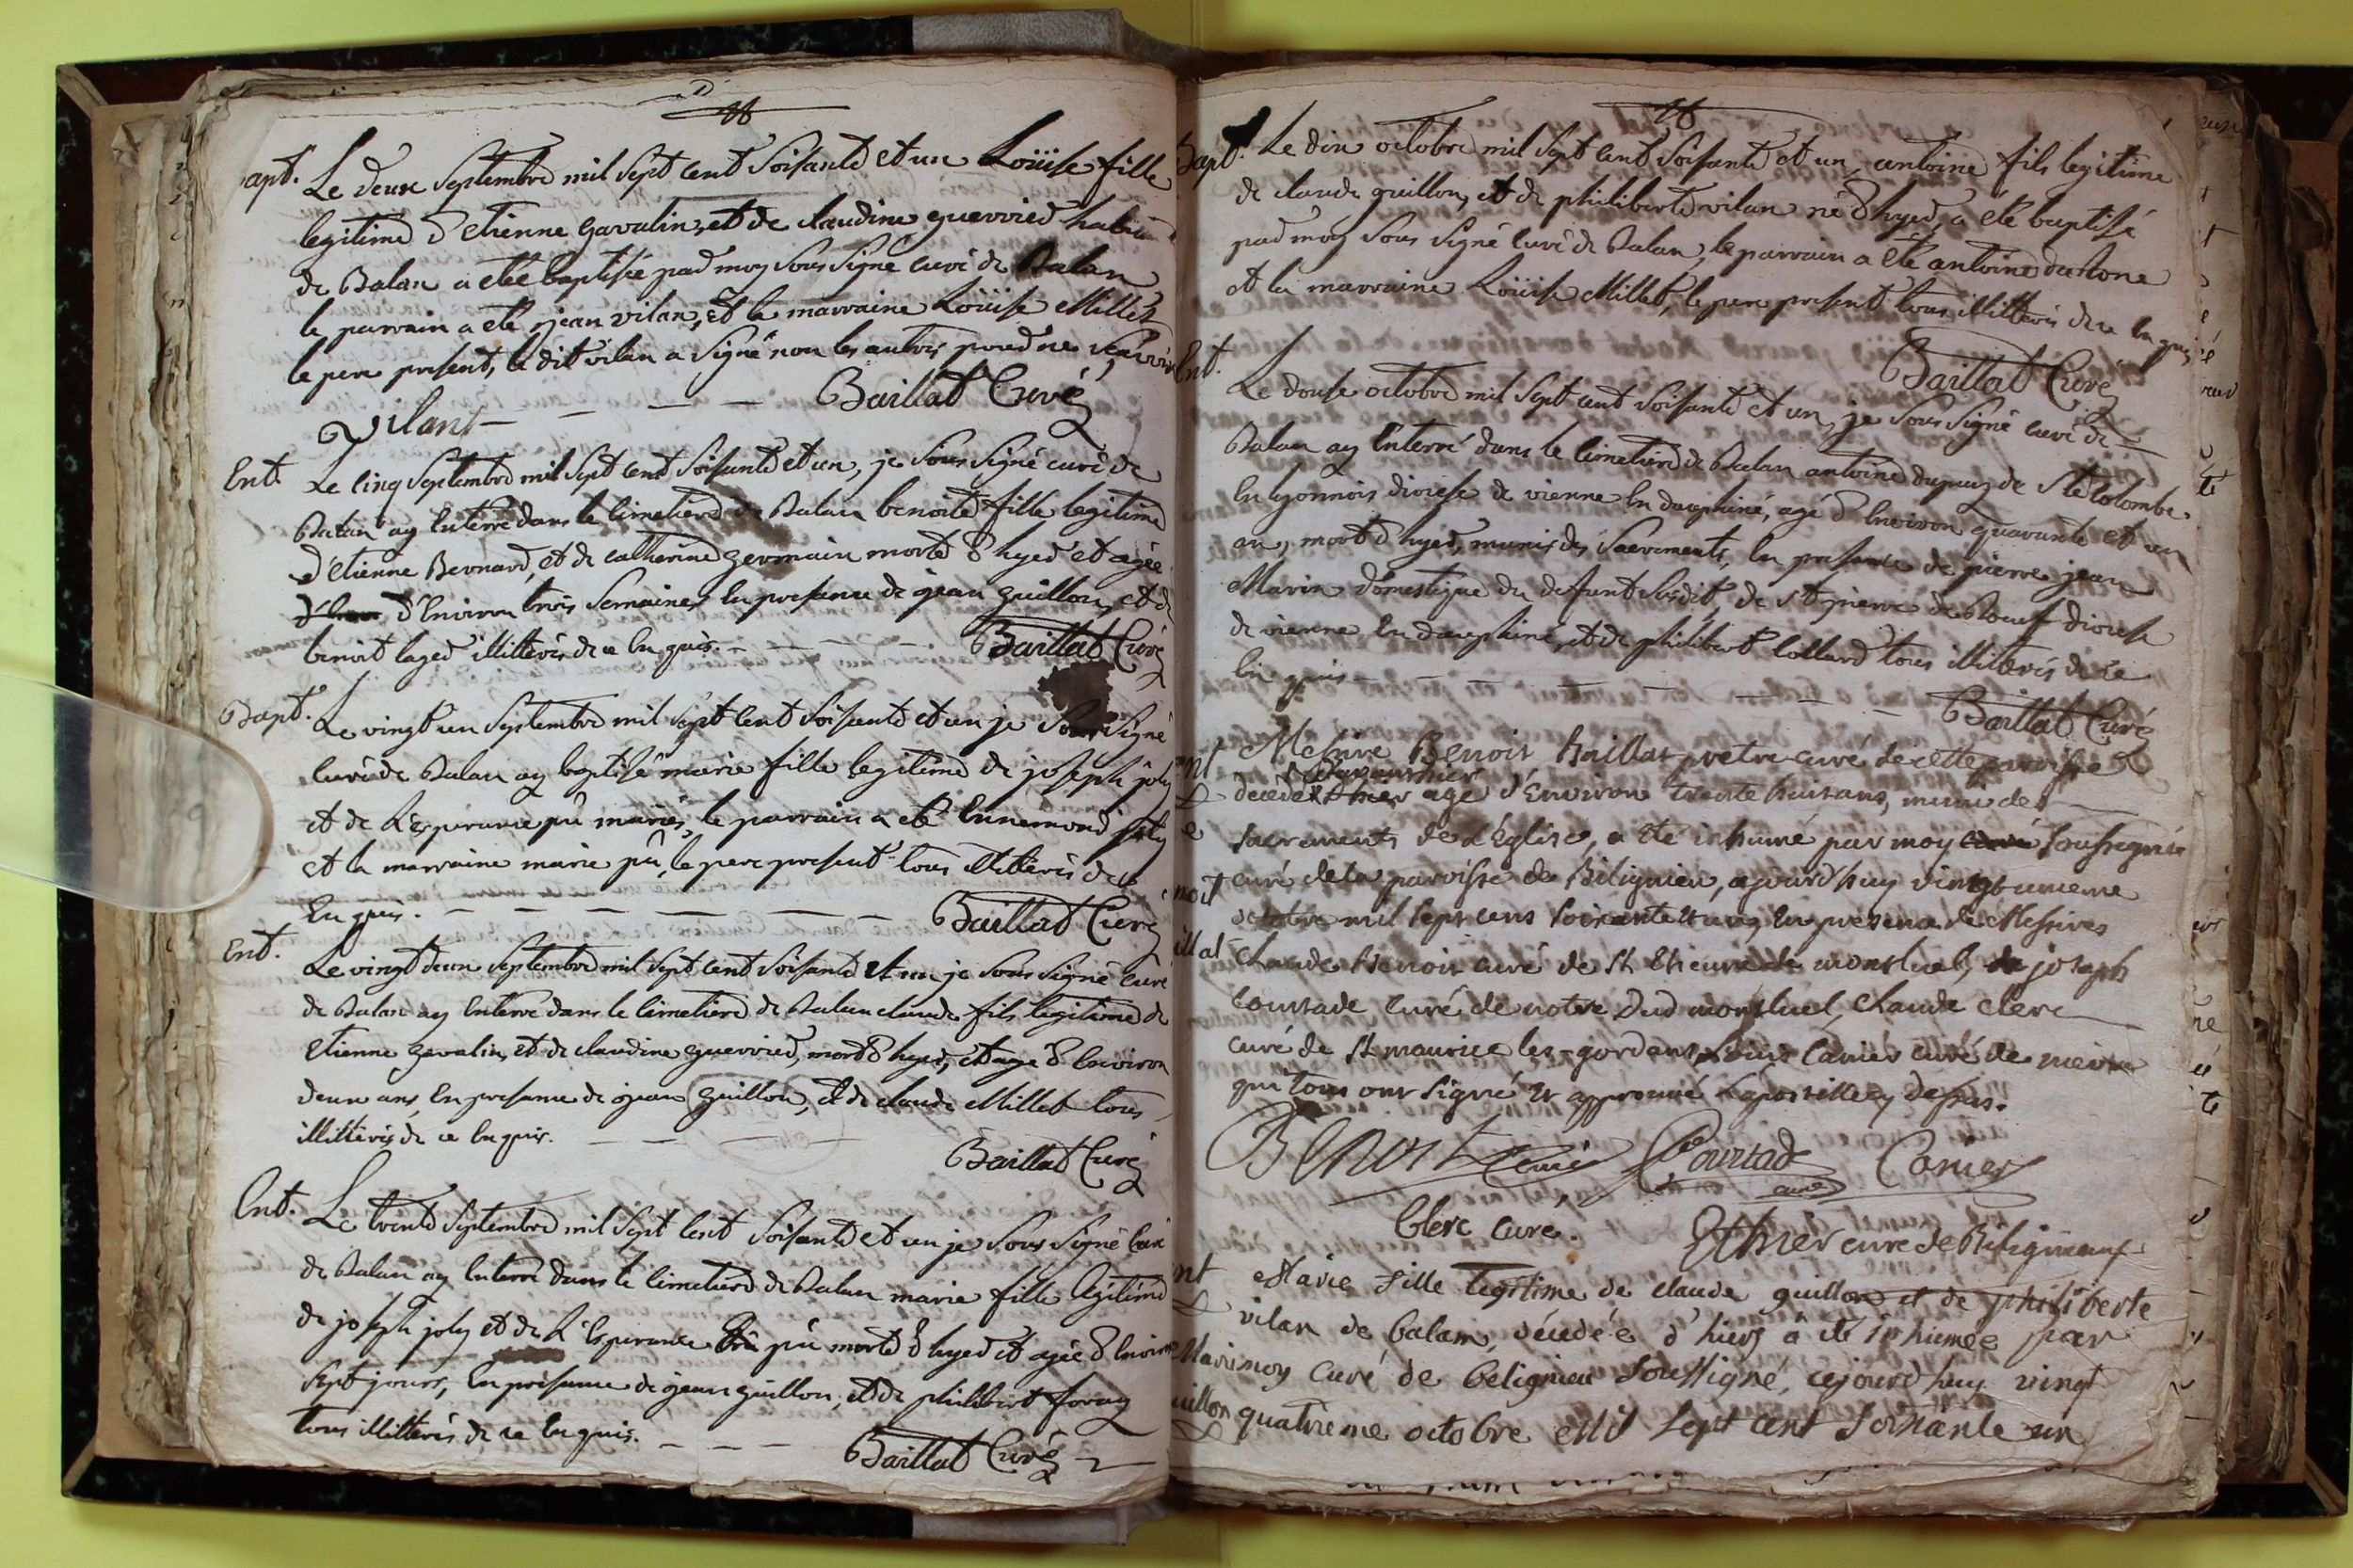 Bapt. Le deux Septembre mil Sept cent Soisante et un Loüise fille
legitime d'etienne gavalin, et de claudine guerried habitans
de Balan a eté baptisée par moy Sous Signé curé de Balan
le parrain a eté jean vilan, et la marraine Loüise Millet
le pere present, le dit vilan a Signé non les autres pour ne Scavoir
Vilant Baillat Curé
Ent. Le cinq Septembre mil Sept cent Soisante et un, je Sous Signé curé de
Balan ay Enterré dans le Cimetiere de Balan benoite fille legitime
d'etienne Bernard, et de catherine germain morte d'hyer et agée
d'Environ trois Semaines En presence de jean guillon, et de
benoit laged illitterés de ce Enquis. Baillat Curé
Bapt. Le vingt un Septembre mil Sept cent Soisante et un je Sous Signé
curé de Balan ay baptisé marie fille legitime de joseph joly
et de L'Esperance pú mariés, le parrain a eté Ennemond joly
et la marraine marie pú, le pere present tous illitterés de ce
Enquis. Baillat Curé
Ent. Le vingt deux Septembre mil Sept cent Soisante et un je Sous Signé curé
de Balan ay Enterré dans le Cimetiere de Balan claude fils legitime de
etienne gavalin, et de claudine guerried, mort d'hyer, et agé d'Environ
deux ans, En presence de jean guillon, et de claude Millet tous
illitterés de ce Enquis. Baillat Curé
Ent. Le trente Septembre mil Sept cent Soisante et un je Sous Signé curé
de Balan ay Enterré dans le Cimetiere de Balan marie fille legitime
de joseph joly et de L'Esperance pú morte d'hyer et agée d'Environ
Sept jours, En presence de jean guillon, et de philibert foray
tous illitterés de ce Enquis. Baillat Curé
Bapt. Le dix octobre mil Sept cent Soisante et un, antoine fils legitime
de claude guillon, et de philiberte vilan né d'hyer, a été baptisé
par moy Sous Signé curé de Balan, le parrain a été antoine
et la marraine Loüise Millet, le pere present tous illitterés de ce Enquis
Baillat Curé
Ent. Le douse octobre mil Sept cent Soisante et un, je Sous Signé curé de
Balan ay Enterré dans le Cimetiere de Balan antoine dupuy de Ste Colombe
En lyonnois, diocese de vienne En dauphiné, agé d'Environ quarante et un
an, mort d'hyer, muni des Sacrements, En presence de pierre jean
Marin domestique du deffunt Susdit, de St pierre de Boeuf diocese
de vienne En dauphiné, et de philibert Collard tous illitterés de ce
Enquis Baillat Curé
Messire Benoit Baillat pretre curé de cette paroisse
decédé hier agé d'Environ trente huit ans, muni des
sacrements de L'Eglise, a été inhumé par moy soussigné
curé de la paroisse de Béligneu, aujourd'huy vingt unieme
octobre mil sept cens soixante et un, En presence de Messires
Claude Benoit curé de St Etienne de montluel, joseph
Courtade curé de notre Dame montluel, Claude Clerc
curé de St maurice les-gordans, Louis Canier curé de nievre
qui tous ont signé et approuvé L'apostille cy dessus.
Benoit Curé Courtade curé Canier
Clerc Curé. curé de Beligneux
Marie fille legitime de claude guillon et de philiberte
vilan de balan, décédée d'hiers à été inhumée par
moy curé de beligneu soussigné, cejourd'huy vingt
quatrieme octobre Mil sept cent soixante un